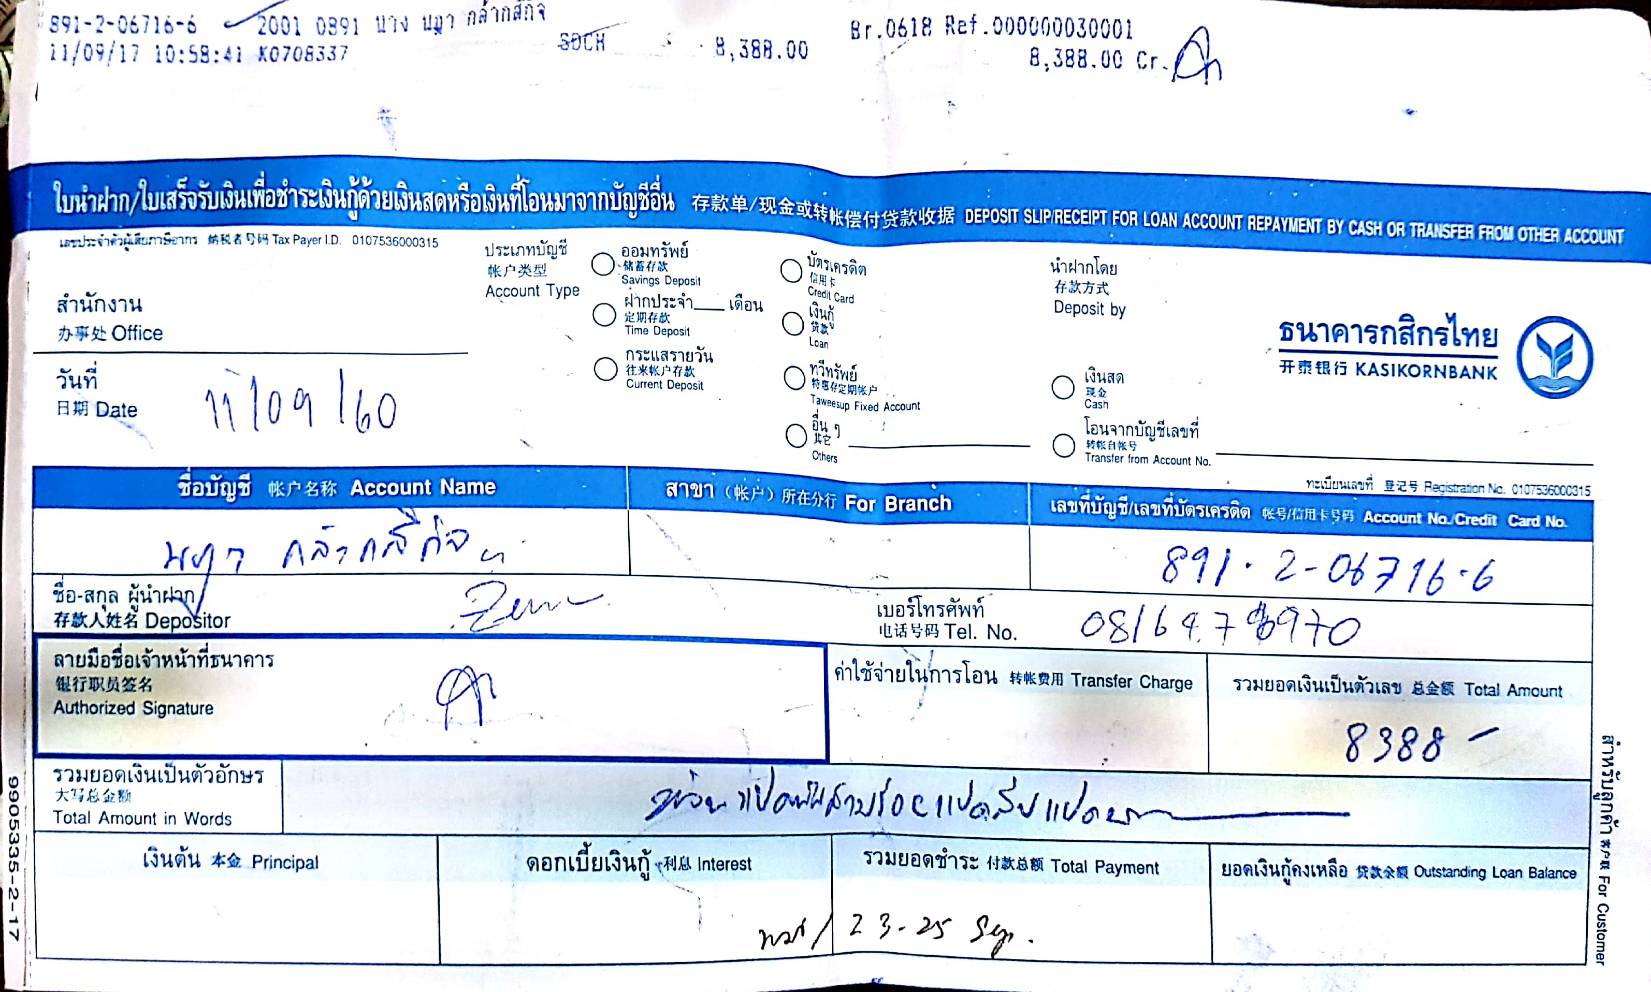 891-2-06716-6 2001 0891 นาง นฎา กล้ากสิกิจ Br.0618 Ref.000000030001
11/09/17 10:58:41 K0708337 SDCH 8,388.00 8,388.00 Cr.
ใบนำฝาก/ใบเสร็จรับเงินเพื่อชำระเงินกู้ด้วยเงินสดหรือเงินที่โอนมาจากบัญชีอื่น 存款单/现金或转帐偿付贷款收据 DEPOSIT SLIP/RECEIPT FOR LOAN ACCOUNT REPAYMENT BY CASH OR TRANSFER FROM OTHER ACCOUNT
เลขประจำตัวผู้เสียภาษีอากร 纳税者号码 Tax Payer I.D. 0107536000315
สำนักงาน
办事处 Office
วันที่
日期 Date
11/09/60
ประเภทบัญชี
帐户类型
Account Type
ออมทรัพย์
储蓄存款
Savings Deposit
ฝากประจำ____เดือน
定期存款
Time Deposit
กระแสรายวัน
往来帐户存款
Current Deposit
บัตรเครดิต
信用卡
Credit Card
เงินกู้
贷款
Loan
ทวีทรัพย์
特惠存定期帐户
Taweesup Fixed Account
อื่น ๆ
其它
Others
นำฝากโดย
存款方式
Deposit by
เงินสด
现金
Cash
โอนจากบัญชีเลขที่
转帐自帐号
Transfer from Account No.
ธนาคารกสิกรไทย
开泰银行 KASIKORNBANK
ทะเบียนเลขที่ 登记号 Registration No. 0107536000315
ชื่อบัญชี 帐户名称 Account Name
สาขา (帐户) 所在分行 For Branch
เลขที่บัญชี/เลขที่บัตรเครดิต 帐号/信用卡号码 Account No./Credit Card No.
นฎา กล้ากสิกิจ
891-2-06716-6
ชื่อ-สกุล ผู้นำฝาก
存款人姓名 Depositor
เบอร์โทรศัพท์
电话号码 Tel. No.
ลายมือชื่อเจ้าหน้าที่ธนาคาร
银行职员签名
Authorized Signature
ค่าใช้จ่ายในการโอน 转帐费用 Transfer Charge
รวมยอดเงินเป็นตัวเลข 总金额 Total Amount
8388 -
รวมยอดเงินเป็นตัวอักษร
大写总金额
Total Amount in Words
แปดพันสามร้อยแปดสิบแปดบาท
เงินต้น 本金 Principal
ดอกเบี้ยเงินกู้ 利息 Interest
รวมยอดชำระ 付款总额 Total Payment
ยอดเงินกู้คงเหลือ 贷款余额 Outstanding Loan Balance
23-25 Sep.
สำหรับลูกค้า 客户联 For Customer
9905335-2-17